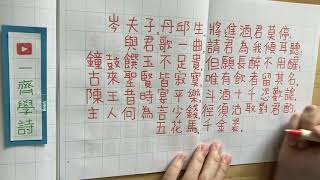 岑夫子,丹邱生,將進酒君莫停.
與君歌一曲,請君為我傾耳聽.
鐘鼓饌玉不足貴,但願長醉不用醒.
古來聖賢皆寂寞,唯有飲者留其名.
陳王昔時宴平樂,斗酒十千恣歡謔.
主人何為言少錢,徑須沽取對君酌.
五花馬,千金裘.
一齊學詩